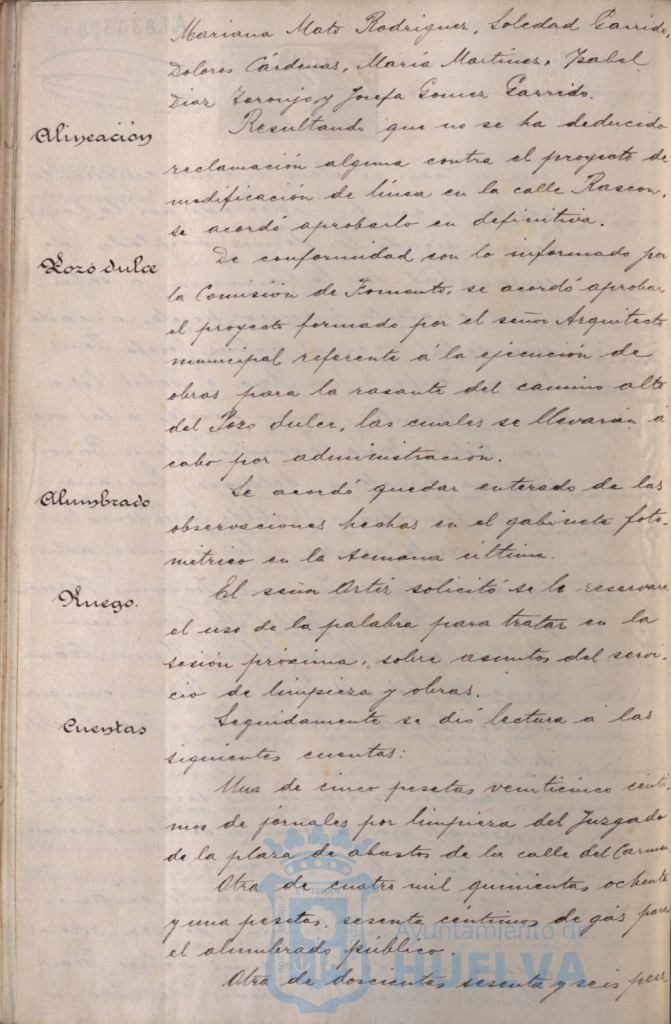 Mariana Mato Rodriguez, Soledad Garrido,
Dolores Cárdenas, María Martinez, Isabel
Diaz Toronjo y Josefa Gomez Garrido.
Alineación
Resultando que no se ha deducido
reclamación alguna contra el proyecto de
modificación de línea en la calle Rascon,
se acordó aprobarlo en definitiva.
Pozo dulce
De conformidad con lo informado por
la Comisión de Fomento, se acordó aprobar
el proyecto formado por el señor Arquitecto
municipal referente á la ejecución de
obras para la rasante del camino alto
del Pozo dulce, las cuales se llevarán á
cabo por administración.
Alumbrado
Se acordó quedar enterado de las
observaciones hechas en el gabinete foto-
métrico en la semana última.
Ruego.
El señor Ortiz solicitó se le reservara
el uso de la palabra para tratar en la
sesión próxima, sobre asuntos del servi-
cio de limpieza y obras.
Cuentas
Seguidamente se dió lectura á las
siguientes cuentas:
Una de cinco pesetas veinticinco cénti-
mos de jornales por limpieza del Juzgado
de la plaza de abastos de la calle del Carmen
Otra de cuatro mil quinientas ochenta
y una pesetas, sesenta céntimos de gás para
el alumbrado público.
Otra de doscientas sesenta y seis pese-
Ayuntamiento de
HUELVA